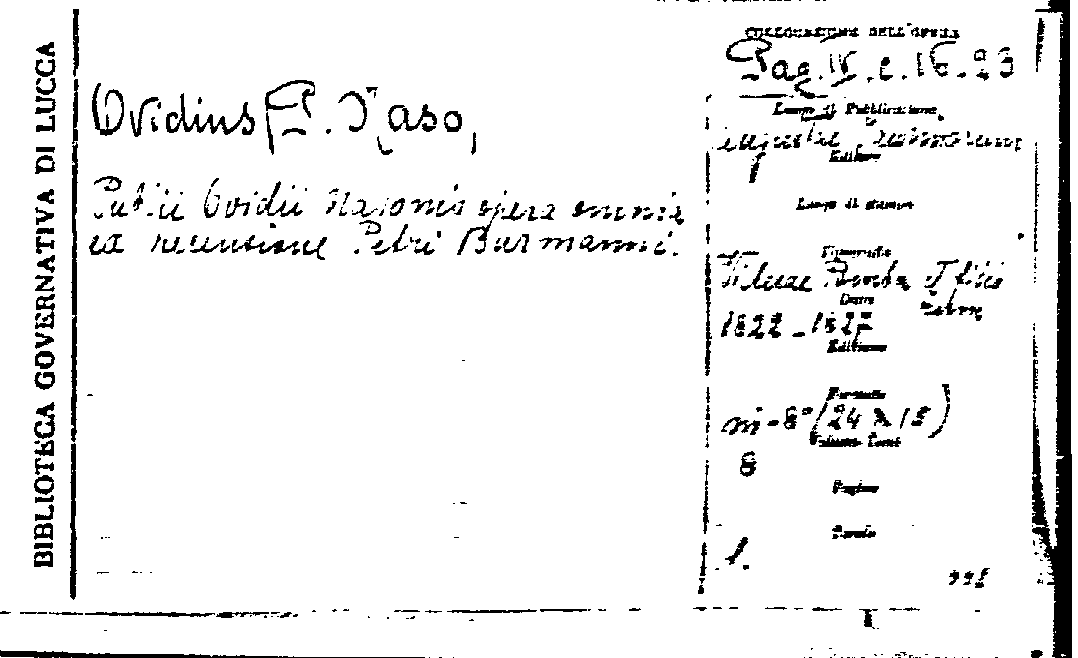 BIBLIOTECA GOVERNATIVA DI LUCCA
Ovidius P. Naso,
Publii Ovidii Nasonis opera omnia
ex recensione Petri Burmanni.
COLLOCAZIONE DELL'OPERA
Pag. IV. c. 16. 23
Luogo di Pubblicazione
Augustae Taurinorum
Editore
Luogo di stampa
Tipografia
Pomba et filii
Data
1822-1827
Edizione
Formato
in-8° (24 x 15)
Volumi-Tomi
8
Pagine
Tavole
1.